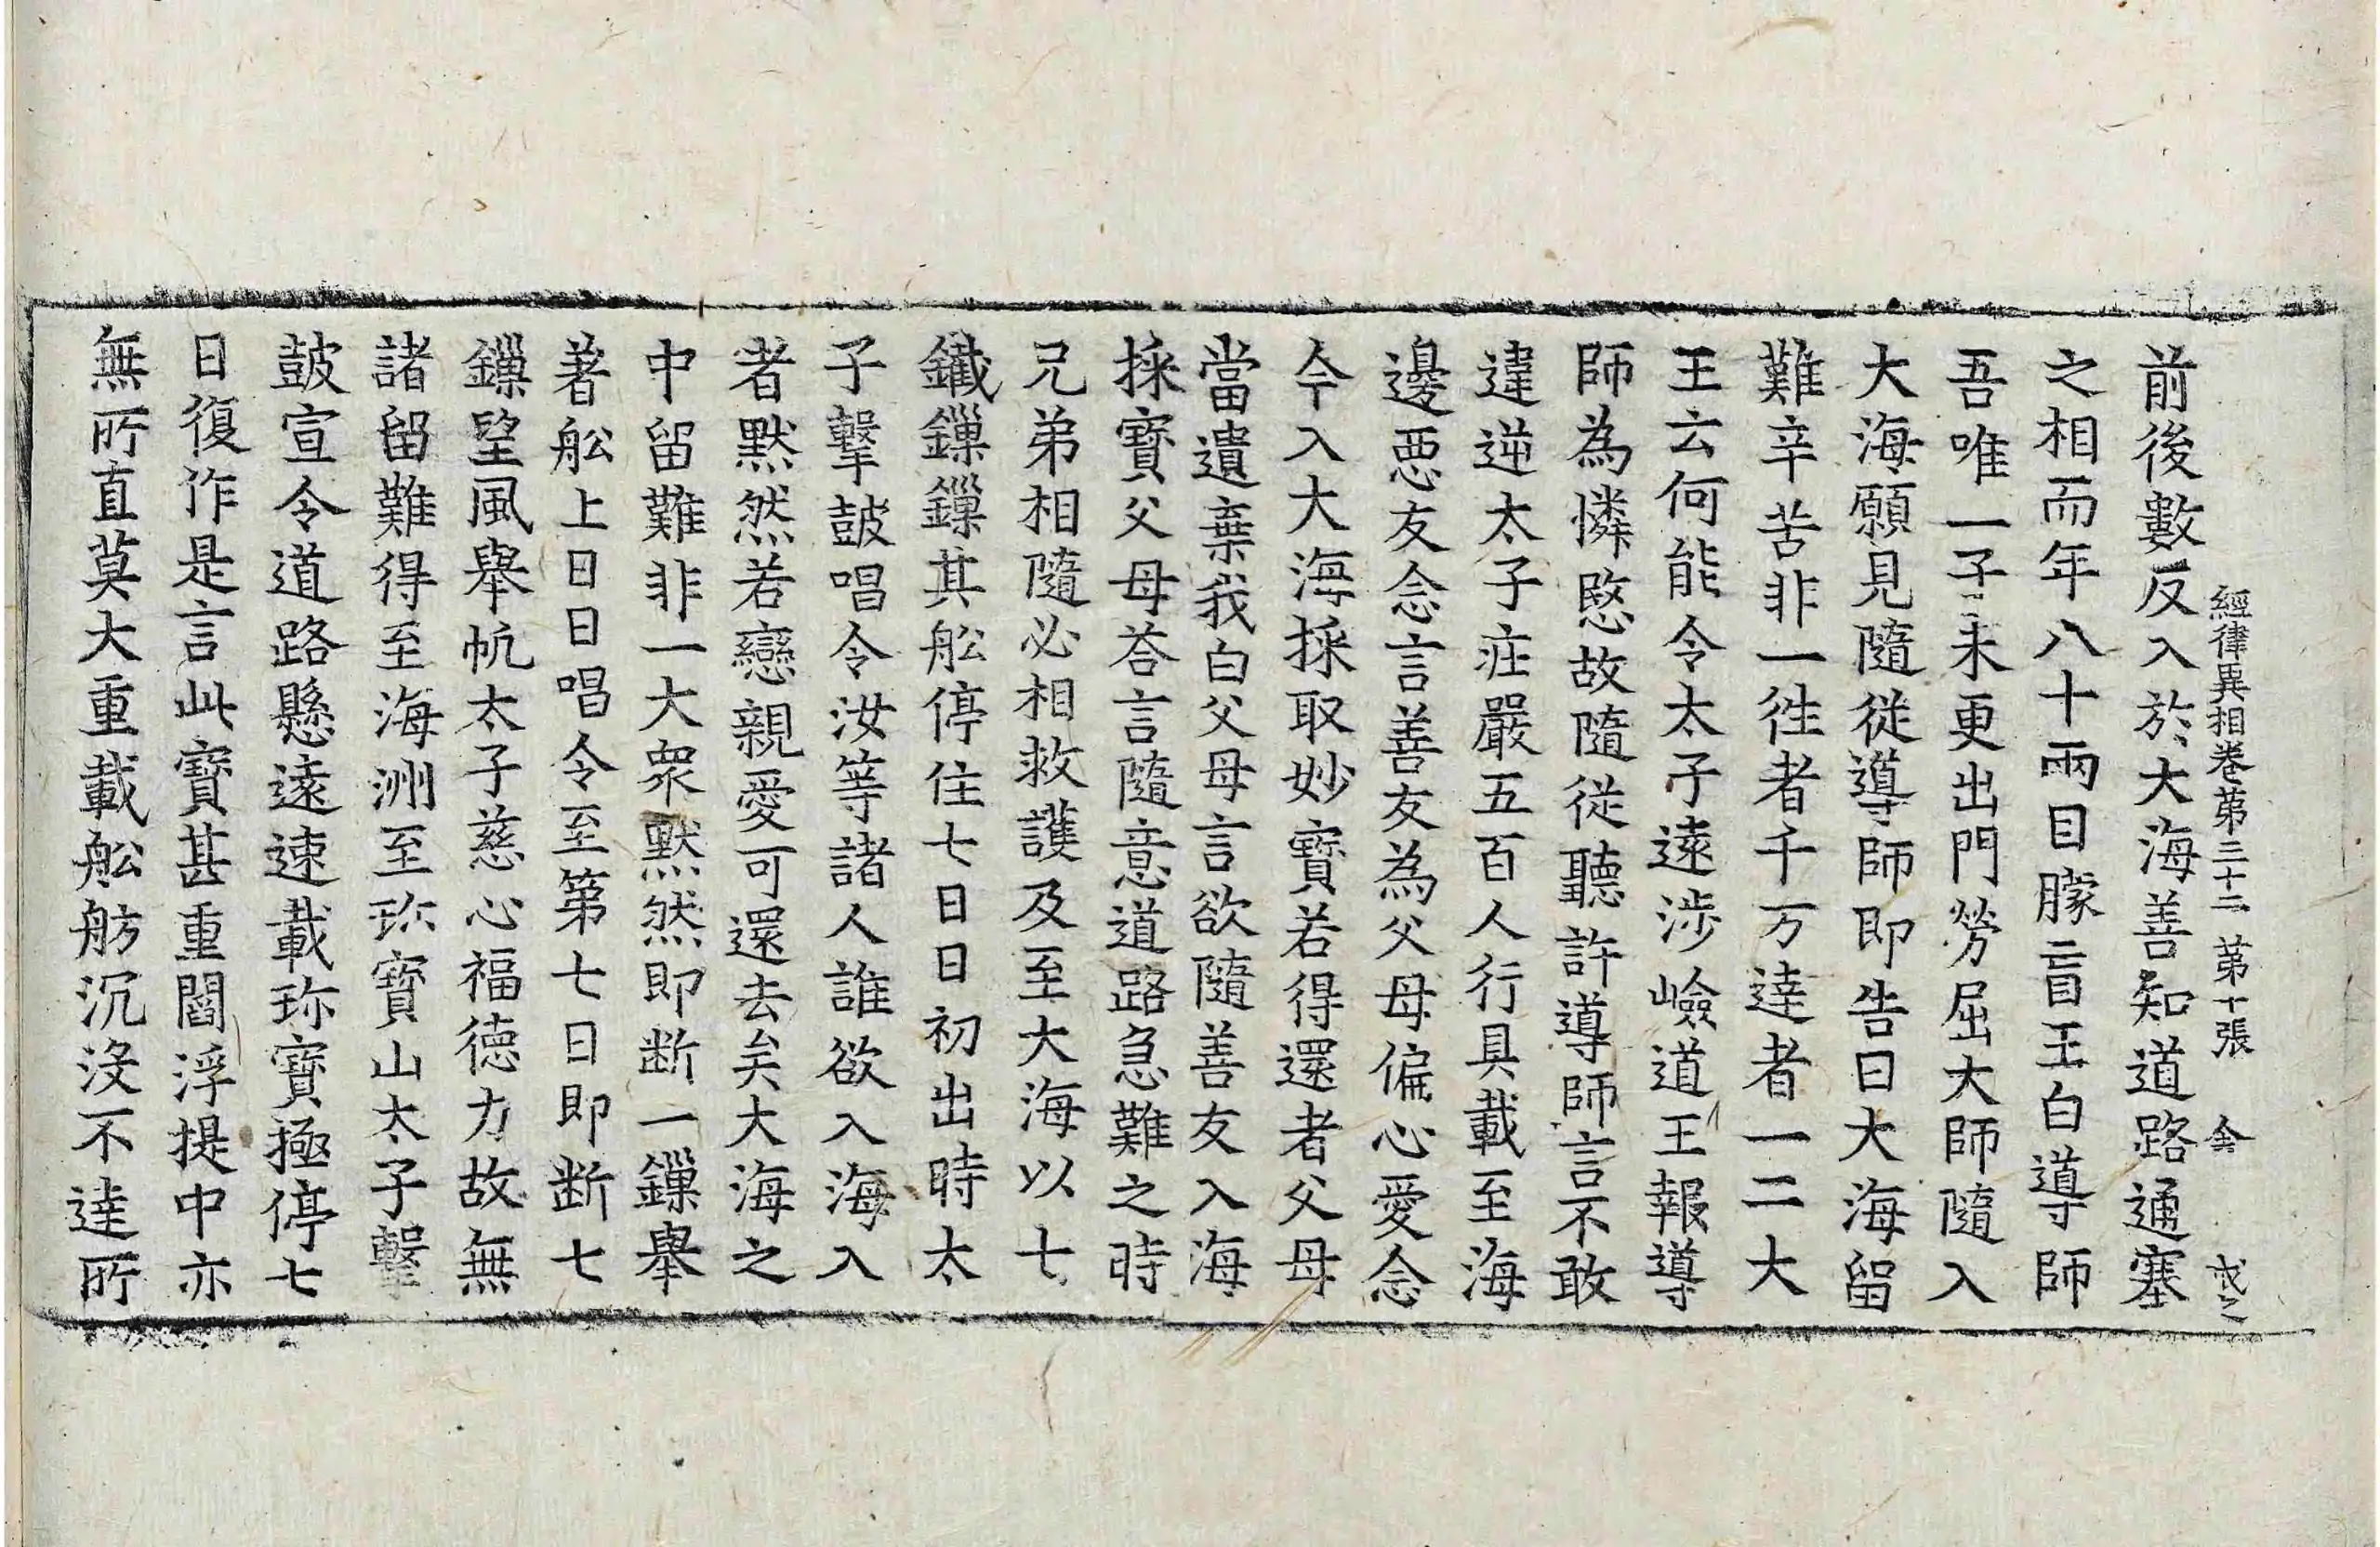 經律異相卷第三十二 第十張
前後數反入於大海善知道路通塞
之相而年八十兩目矇盲王白導師
吾唯一子未更出門勞屈大師隨入
大海願見隨從導師即告曰大海留
難辛苦非一徃者千万達者一二大
王云何能令太子遠涉嶮道王報導
師為憐愍故隨從聽許導師言不敢
違逆太子莊嚴五百人行具載至海
邊惡友念言善友為父母偏心愛念
今入大海採取妙寶若得還者父母
當遺棄我白父母言欲隨善友入海
採寶父母荅言隨意道路急難之時
兄弟相隨必相救護及至大海以七
鐵鏁鏁其舩停住七日日初出時太
子擊鼓唱令汝等諸人誰欲入海入
者默然若戀親愛可還去矣大海之
中留難非一大衆默然即断一鏁舉
著舩上日日唱令至第七日即断七
鏁望風舉帆太子慈心福德力故無
諸留難得至海洲至珎寶山太子擊
鼓宣令道路懸遠速載珎寶極停七
日復作是言此寶甚重閻浮提中亦
無所直莫大重載舩舫沉没不達所